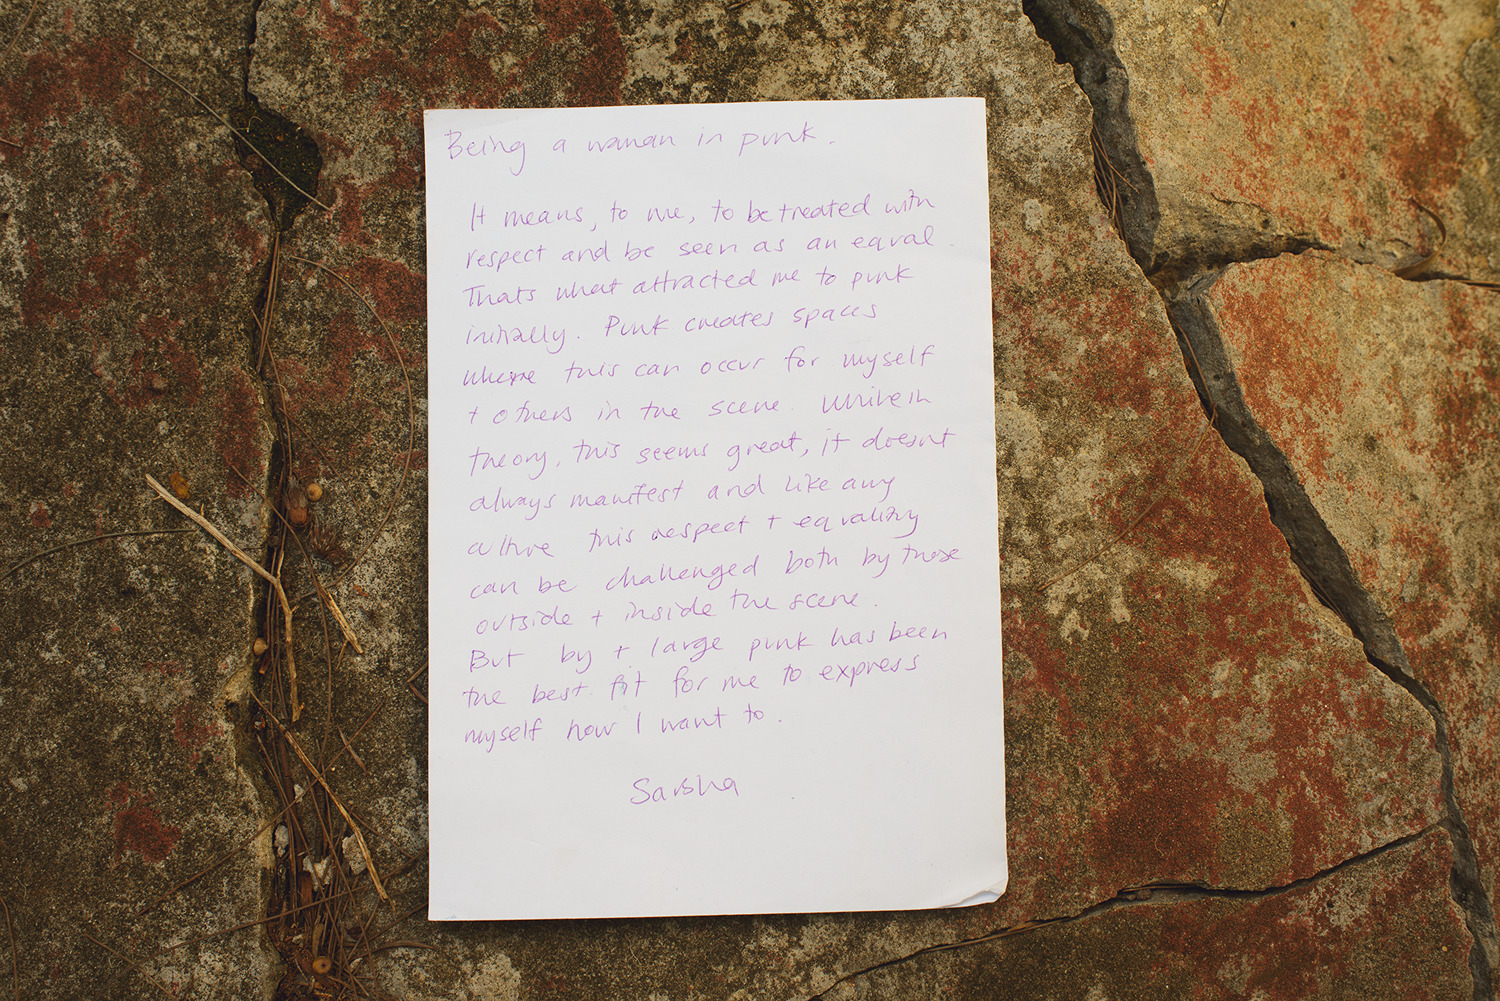 Being a woman in punk.
It means, to me, to be treated with
respect and be seen as an equal.
Thats what attracted me to punk
initially. Punk creates spaces
where this can occur for myself
+ others in the scene. While in
theory, this seems great, it doesnt
always manifest and like any
culture this respect + equality
can be challenged both by those
outside + inside the scene.
But by + large punk has been
the best fit for me to express
myself how I want to.
Sarsha